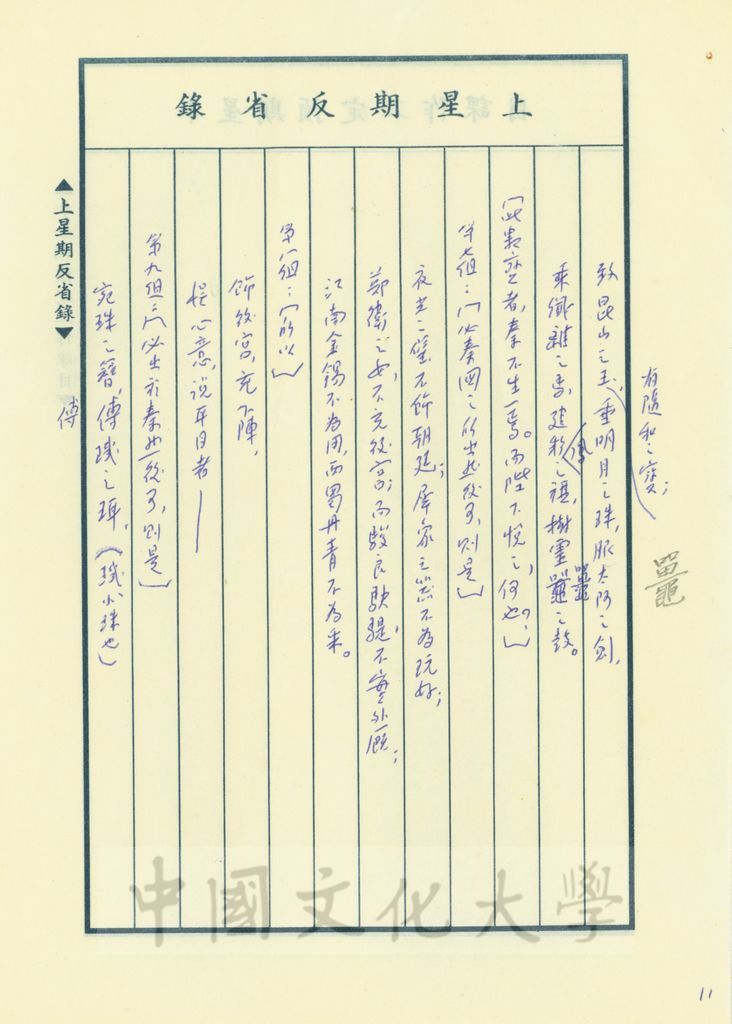 上星期反省錄
有隨和之寶；
致昆山之玉，垂明月之珠，服太阿之劍，
乘纖離之馬，建翠鳳之旗，樹靈鼉之鼓。
鼉
鼉
「此數寶者，秦不生一焉。而陛下悅之，何也？」
第七組：「必秦國之所生然後可，則是」
夜光之璧不飾朝廷；犀象之器不為玩好；
鄭衛之女，不充後宮；而駿良駃騠，不實外廄；
江南金錫不為用，西蜀丹青不為采。
第八組：「所以」
飾後宮，充下陳，
娛心意，說耳目者——
第九組：「必出於秦然後可，則是」
宛珠之簪，傅璣之珥，（璣小珠也）
傅
▲上星期反省錄▼
中國文化大學
11